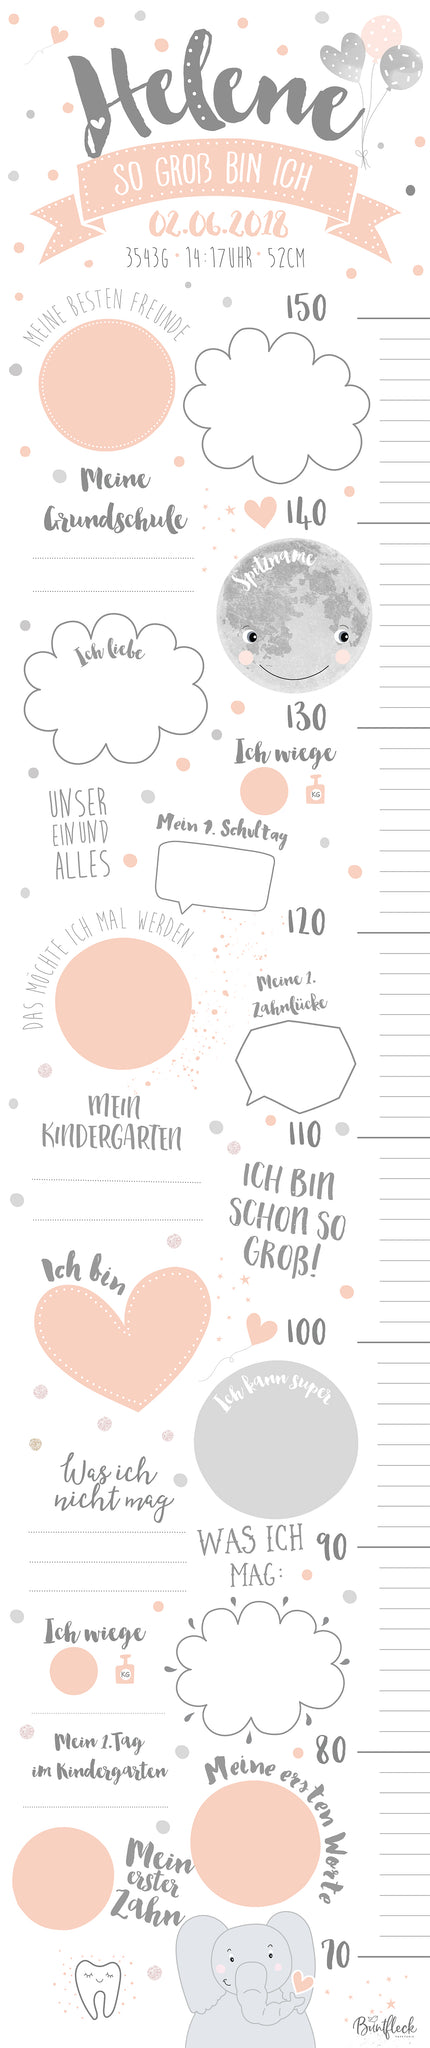 Helene
SO GROß BIN ICH
02.06.2018
3543G · 14:17UHR · 52CM
MEINE BESTEN FREUNDE
150
Meine
Grundschule
140
Spitzname
Ich liebe
130
Ich wiege
KG
UNSER
EIN UND
ALLES
Mein 1. Schultag
120
DAS MÖCHTE ICH MAL WERDEN
Meine 1.
Zahnlücke
MEIN
KINDERGARTEN
110
ICH BIN
SCHON SO
GROß!
Ich bin
100
Ich kann super
Was ich
nicht mag
WAS ICH
MAG:
90
Ich wiege
KG
Mein 1.Tag
im Kindergarten
80
Meine ersten Worte
Mein
erster
Zahn
70
Buntfleck